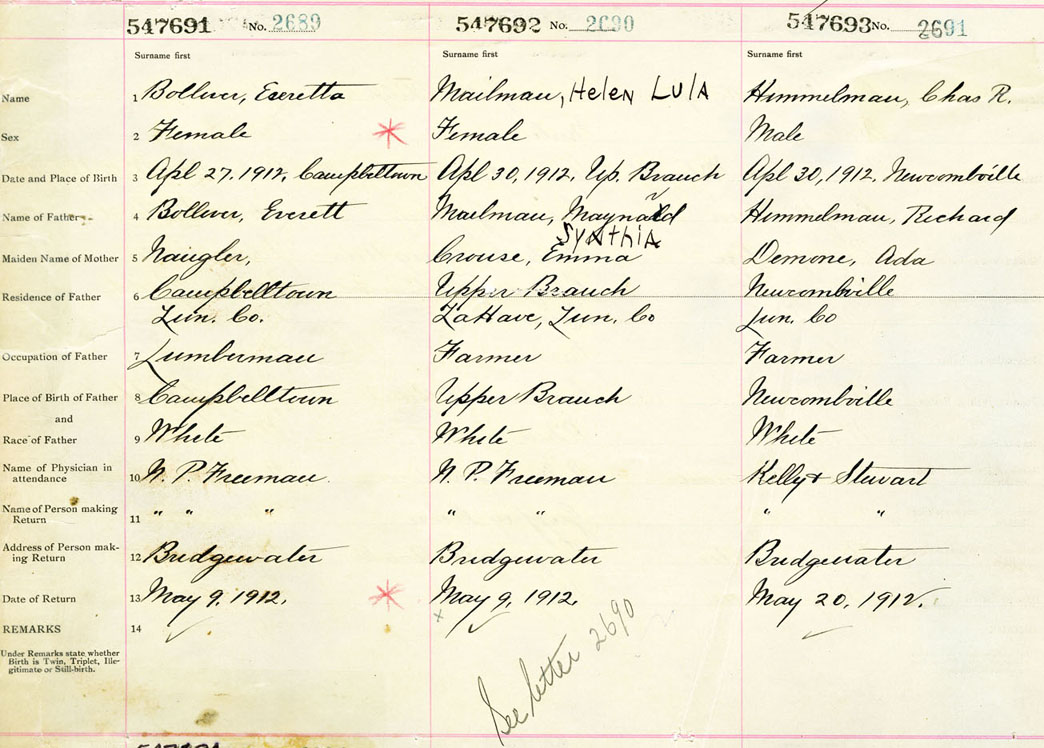 547691 No. 2689 547692 No. 2690 547693 No. 2691
Surname first Surname first Surname first
Name 1 Bolliver, Everetta Mailman, Helen Lula Himmelman, Chas R.
Sex 2 Female Female Male
Date and Place of Birth 3 Apl 27, 1912, Campbelltown Apl 30, 1912, Up. Branch Apl 30, 1912, Newcombville
Name of Father 4 Bolliver, Everett Mailman, Maynard Himmelman, Richard
Synthia
Maiden Name of Mother 5 Naugler, Crouse, Emma Demone, Ada
Residence of Father 6 Campbelltown Upper Branch Newcombville
Lun. Co. LaHave, Lun. Co Lun. Co
Occupation of Father 7 Lumberman Farmer Farmer
Place of Birth of Father 8 Campbelltown Upper Branch Newcombville
and
Race of Father 9 White White White
Name of Physician in
attendance 10 N. P. Freeman N. P. Freeman Kelly & Stewart
Name of Person making
Return 11 " " " " " " "
Address of Person mak-
ing Return 12 Bridgewater Bridgewater Bridgewater
Date of Return 13 May 9, 1912. May 9, 1912. May 20, 1912.
REMARKS 14
Under Remarks state whether
Birth is Twin, Triplet, Ille-
gitimate or Still-birth.
See letter 2690